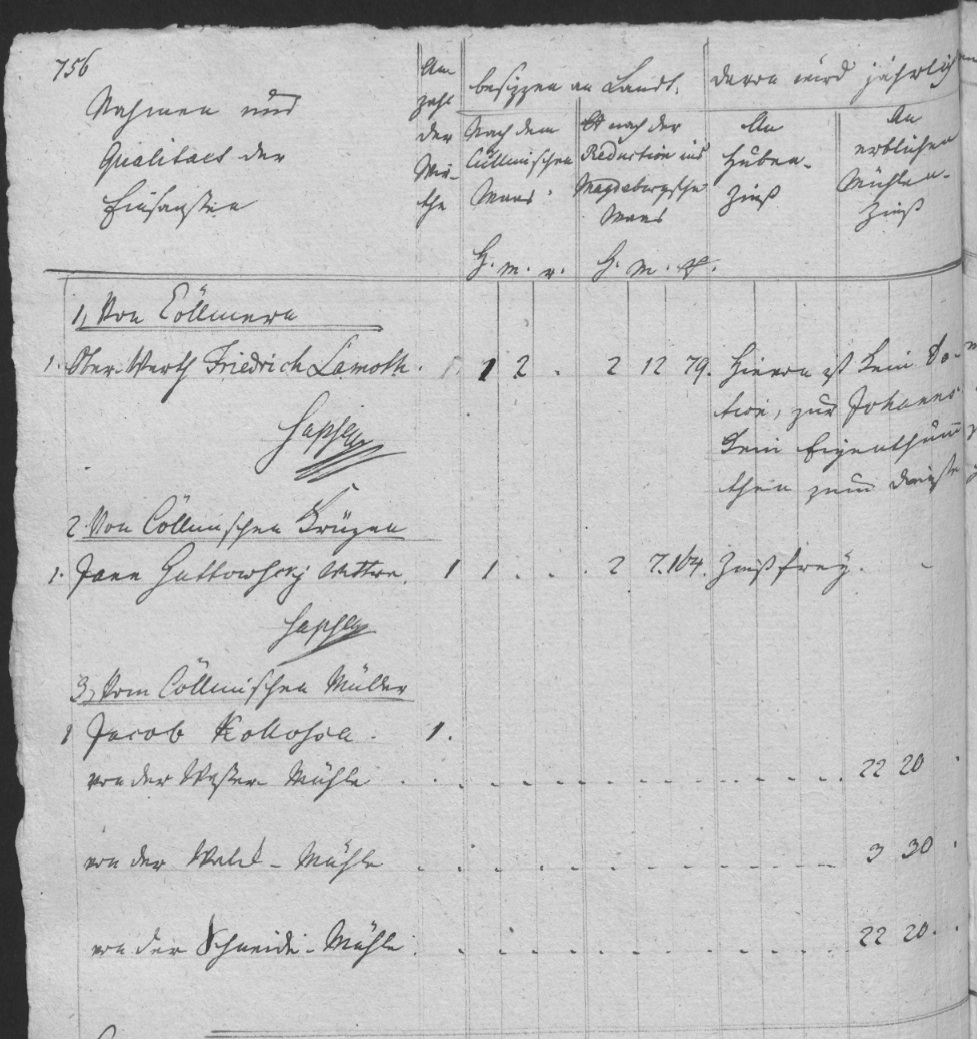 756
Nahmen und
Qualitaet der
Einsaassen
An
zahl
der
Wir-
the
besizzen an Landt.
Nach dem
Cüllmischen
Maas
H. m. r.
nach der
Reduction ins
Magdeburgsche
Maas
H. M. R.
davon wird jährlich
An
Huben-
Zinß
An
erblichen
Mühlen-
Zinß
1, Von Cöllmern
1. Ober-Warth Friedrich Lamoth. 1 2 . 2 12 79. Hievon ist kein
zur Johanis
Kein Eigenthum
then zum
2 Von Cöllmischen Krügen
1. Jann Gattowsky Wittwe. 1 1 . . . 2 7. 164. Zinßfrey. -
3, Vom Cöllmischen Müller
1 Jacob Kollossa. 1.
von der Wasser Mühle 22 20
von der Walk-Mühle 3 30
von der Schneide-Mühle 22 20